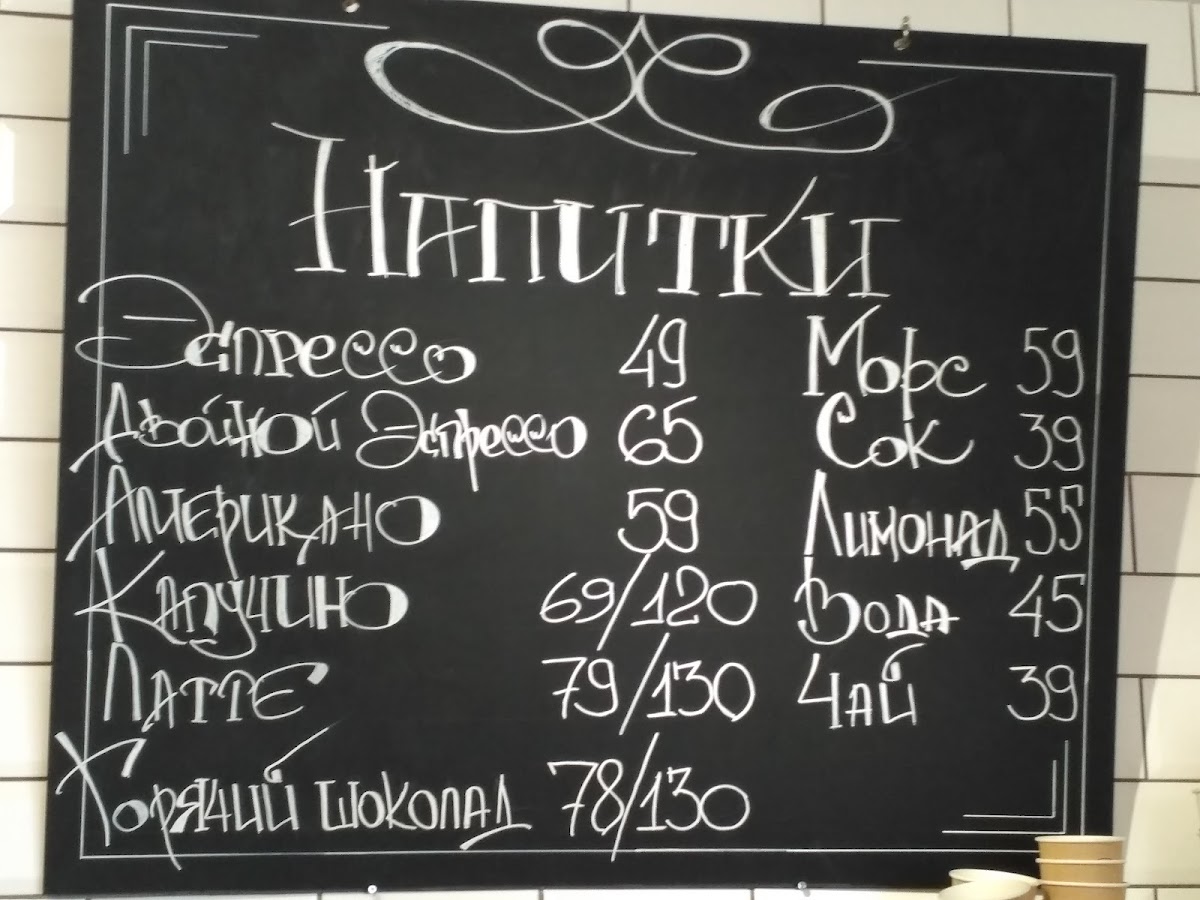 Напитки
Эспрессо 49
Двойной Эспрессо 65
Американо 59
Капучино 69/120
Латте 79/130
Горячий шоколад 78/130
Морс 59
Сок 39
Лимонад 55
Вода 45
Чай 39